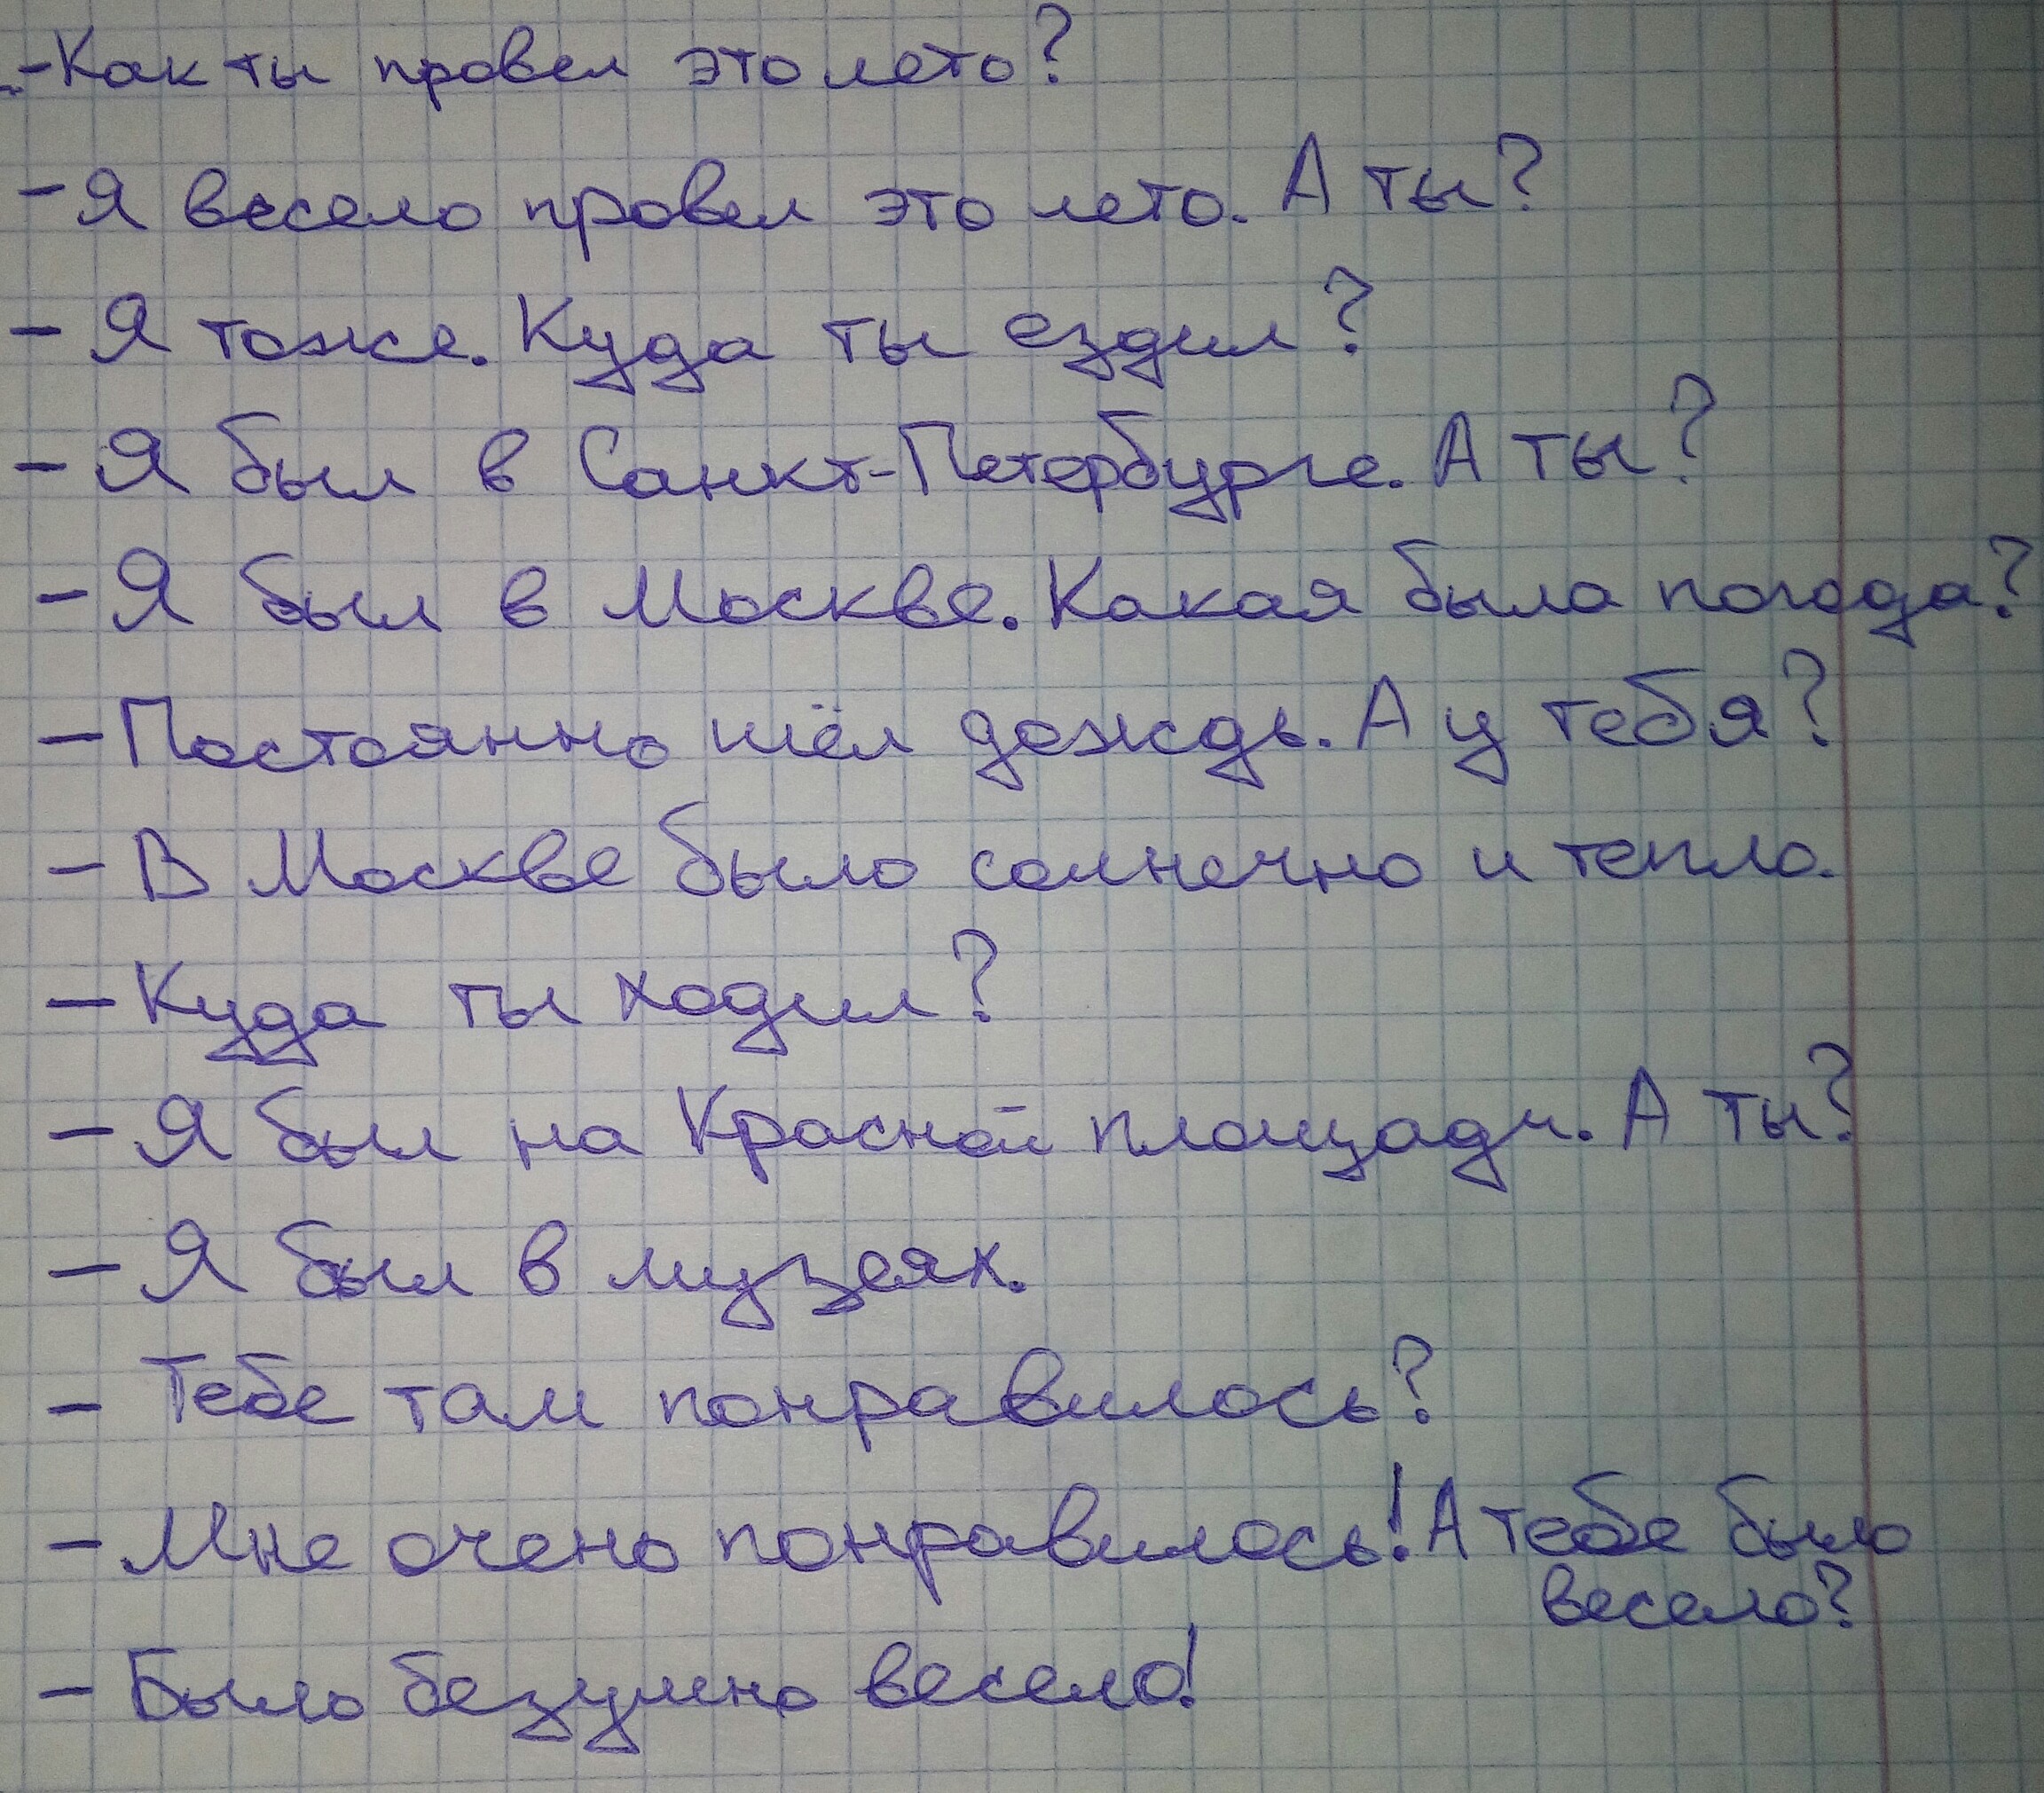 - Как ты провел это лето?
- Я весело провел это лето. А ты?
- Я тоже. Куда ты ездил?
- Я был в Санкт-Петербурге. А ты?
- Я был в Москве. Какая была погода?
- Постоянно шёл дождь. А у тебя?
- В Москве было солнечно и тепло.
- Куда ты ходил?
- Я был на Красной площади. А ты?
- Я был в музеях.
- Тебе там понравилось?
- Мне очень понравилось! А тебе было
весело?
- Было безумно весело!